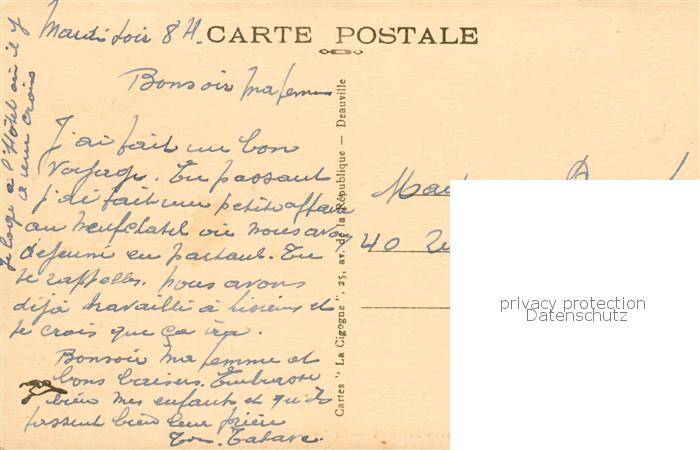 Mardi soir 8 H.
CARTE POSTALE
Bonsoir ma femme
J'ai fait un bon
voyage. En passant
j'ai fait un petite affaire
au Neufchatel où nous avons
déjeuné en partant. Tu
te rappelles. nous avons
déjà travaillé à Lisieux et
je crois que ça ira.
Bonsoir ma femme et
bons baisers. Embrasse
bien mes enfants et qu'ils
fassent bien leur prière
Ton
Je loge à l'Hôtel où il y
a une croix
Cartes " La Cigogne ", 25, av. de la République — Deauville
40
privacy protection
Datenschutz